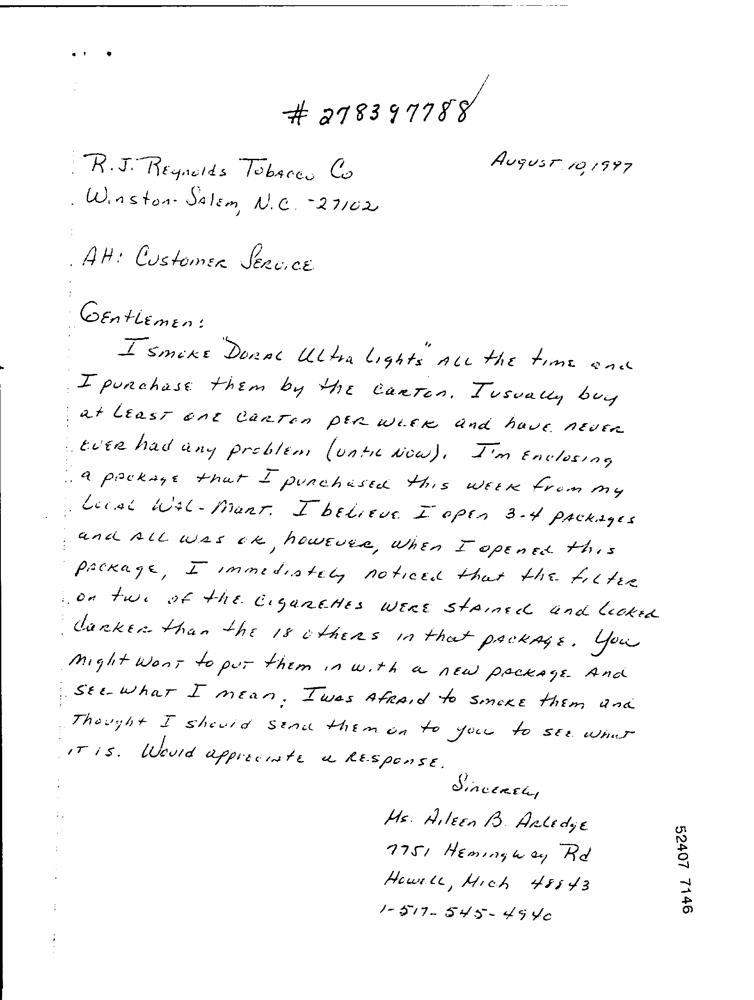 # 278397788
August 10, 1997
R.J. Reynolds Tobacco Co
Winston-Salem, N.C. -27102
Att: Customer Service
Gentlemen:
I smoke "Doral Ultra Lights" all the time and
I purchase them by the carton. I usually buy
at least one carton per week and have never
ever had any problem (until now). I'm enclosing
a package that I purchased this week from my
local Wal-Mart. I believe I open 3-4 packages
and all was ok, however, when I opened this
package, I immediately noticed that the filter
on two of the cigarettes were stained and looked
darker than the 18 others in that package. You
might want to put them in with a new package and
see what I mean. I was afraid to smoke them and
thought I should send them on to you to see what
it is. Would appreciate a response.
Sincerely,
Ms. Aileen B. Arledge
7751 Hemingway Rd
Howell, Mich 48843
1-517-545-4940
52407 7146